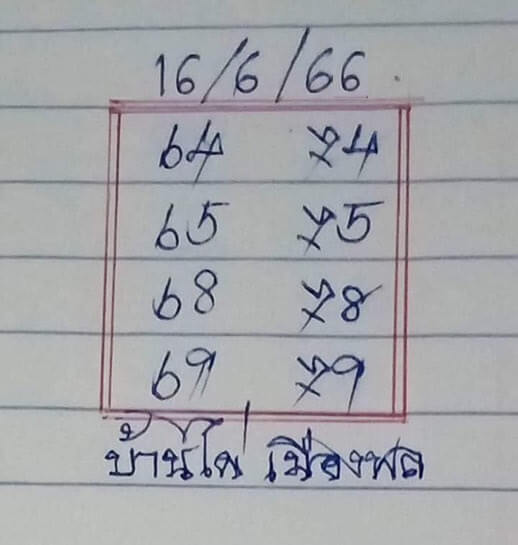 16/6/66
64 74
65 75
68 78
69 79
บ้านไผ่ เมืองพล